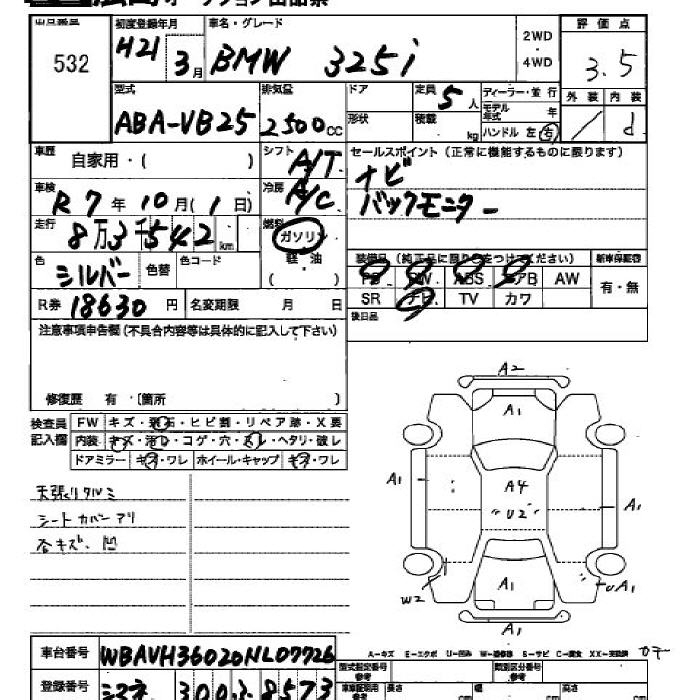 出品番号 初度登録年月 車名・グレード 2WD・4WD 評価点
532 H21 3月 BMW 325i 3.5
型式 排気量 ドア 定員 5人 ディーラー・並行 外装 内装
ABA-VB25 2500cc 形状 積載 kg モデル年式 年 ハンドル 左右 / d
車歴 自家用・( ) シフト A/T セールスポイント(正常に機能するものに限ります)
車検 R7年10月(1日) 冷房 A/C ナビ
バックモニター
走行 8万3千542km 燃料 ガソリン
軽油
( )
色 シルバー 色替 色コード
装備品(純正品に限り○をつけてください) 新車保証書
PS PW ABS エアB AW 有・無
SR ナビ TV カワ
R券 18630円 名変期限 月 日
後日品
注意事項申告欄(不具合内容等は具体的に記入して下さい)
修復歴 有(箇所 )
検査員記入欄 FW キズ・飛石・ヒビ割・リペア跡・X要
内装 キズ・汚レ・コゲ・穴・スレ・ヘタリ・破レ
ドアミラー キズ・ワレ ホイール・キャップ キズ・ワレ
天張りタルミ
シートカバーアリ
各キズ、凹
A2
A1
A1
A4
A1
U2
A1
W2
UA1
A1
車台番号 WBAVH36020NL07726
A-キズ E-エクボ U-凹み W-補修跡 S-サビ C-腐食 XX-交換済
型式指定番号 参考 類別区分番号 参考
登録番号 300 8573
長さ cm 幅 cm 高さ cm